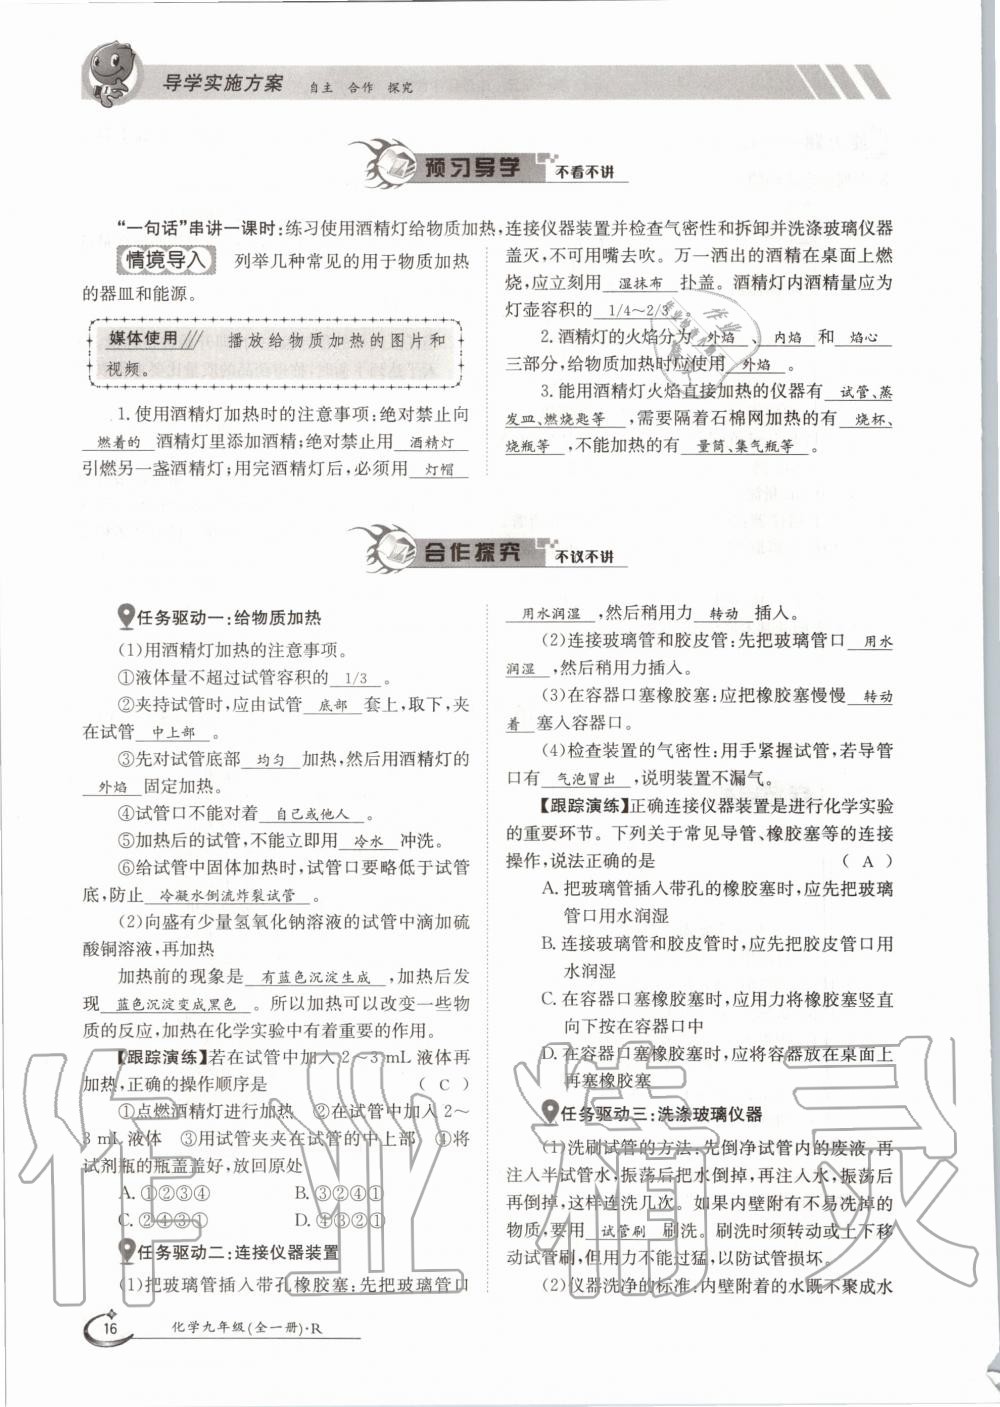 导学实施方案 自主 合作 探究
预习导学 不看不讲
“一句话”串讲一课时:练习使用酒精灯给物质加热,连接仪器装置并检查气密性和拆卸并洗涤玻璃仪器
情境导入 列举几种常见的用于物质加热
的器皿和能源。
媒体使用 播放给物质加热的图片和
视频。
1.使用酒精灯加热时的注意事项:绝对禁止向
燃着的 酒精灯里添加酒精;绝对禁止用 酒精灯
引燃另一盏酒精灯;用完酒精灯后,必须用 灯帽
盖灭,不可用嘴去吹。万一洒出的酒精在桌面上燃
烧,应立刻用 湿抹布 扑盖。酒精灯内酒精量应为
灯壶容积的 1/4~2/3 。
2.酒精灯的火焰分为 外焰 、 内焰 和 焰心
三部分,给物质加热时应使用 外焰 。
3.能用酒精灯火焰直接加热的仪器有 试管、蒸
发皿、燃烧匙等 ,需要隔着石棉网加热的有 烧杯、
烧瓶等 ,不能加热的有 量筒、集气瓶等 。
合作探究 不议不讲
任务驱动一:给物质加热
(1)用酒精灯加热的注意事项。
①液体量不超过试管容积的 1/3 。
②夹持试管时,应由试管 底部 套上,取下,夹
在试管 中上部 。
③先对试管底部 均匀 加热,然后用酒精灯的
外焰 固定加热。
④试管口不能对着 自己或他人 。
⑤加热后的试管,不能立即用 冷水 冲洗。
⑥给试管中固体加热时,试管口要略低于试管
底,防止 冷凝水倒流炸裂试管 。
(2)向盛有少量氢氧化钠溶液的试管中滴加硫
酸铜溶液,再加热
加热前的现象是 有蓝色沉淀生成 ,加热后发
现 蓝色沉淀变成黑色 。所以加热可以改变一些物
质的反应,加热在化学实验中有着重要的作用。
【跟踪演练】若在试管中加入2~3 mL 液体再
加热,正确的操作顺序是 ( C )
①点燃酒精灯进行加热 ②在试管中加入2~
3 mL 液体 ③用试管夹夹在试管的中上部 ④将
试剂瓶的瓶盖盖好,放回原处
A.①②③④ B.③②④①
C.②④③① D.④③②①
任务驱动二:连接仪器装置
(1)把玻璃管插入带孔橡胶塞:先把玻璃管口
用水润湿 ,然后稍用力 转动 插入。
(2)连接玻璃管和胶皮管:先把玻璃管口 用水
润湿 ,然后稍用力插入。
(3)在容器口塞橡胶塞:应把橡胶塞慢慢 转动
着 塞入容器口。
(4)检查装置的气密性:用手紧握试管,若导管
口有 气泡冒出 ,说明装置不漏气。
【跟踪演练】正确连接仪器装置是进行化学实验
的重要环节。下列关于常见导管、橡胶塞等的连接
操作,说法正确的是 ( A )
A.把玻璃管插入带孔的橡胶塞时,应先把玻璃
管口用水润湿
B.连接玻璃管和胶皮管时,应先把胶皮管口用
水润湿
C.在容器口塞橡胶塞时,应用力将橡胶塞竖直
向下按在容器口中
D.在容器口塞橡胶塞时,应将容器放在桌面上
再塞橡胶塞
任务驱动三:洗涤玻璃仪器
(1)洗刷试管的方法:先倒净试管内的废液,再
注入半试管水,振荡后把水倒掉,再注入水,振荡后
再倒掉,这样连洗几次。如果内壁附有不易洗掉的
物质,要用 试管刷 刷洗。刷洗时须转动或上下移
动试管刷,但用力不能过猛,以防试管损坏。
(2)仪器洗净的标准:内壁附着的水既不聚成水
16 化学九年级(全一册)·R
作业精灵